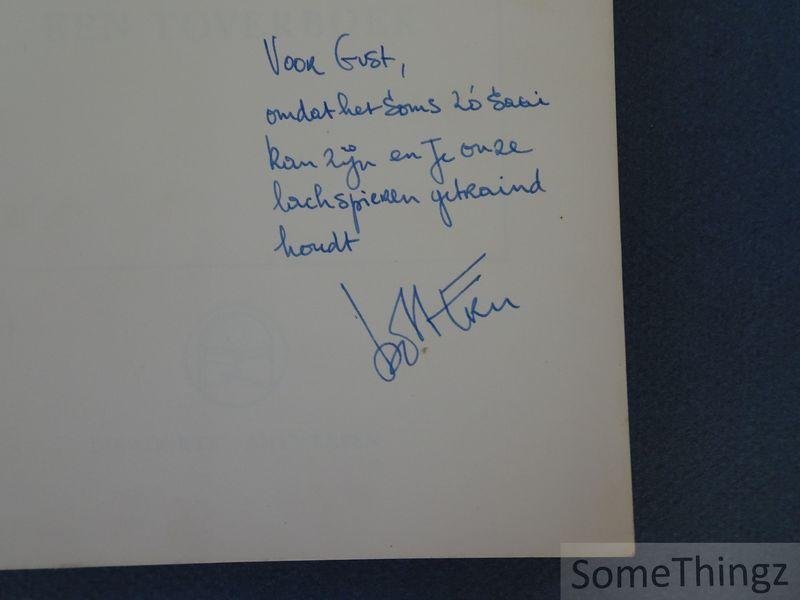 EEN TOVERBOEK
Voor Gust,
omdat het soms zó saai
kan zijn en Je onze
lachspieren getraind
houdt
SomeThingz